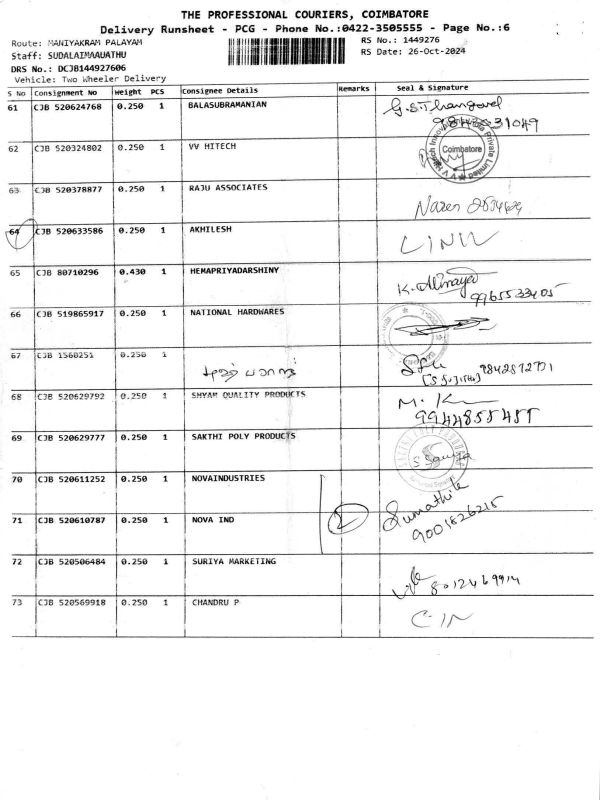 THE PROFESSIONAL COURIERS, COIMBATORE
Delivery Runsheet - PCG - Phone No.:0422-3505555 - Page No.:6
Route: MANIYAKRAM PALAYAM
RS No.: 1449276
Staff: SUDALAIMAAUATHU
RS Date: 26-Oct-2024
DRS No.: DCJB144927606
Vehicle: Two Wheeler Delivery
S No Consignment No Weight PCS Consignee Details Remarks Seal & Signature
61 CJB 520624768 0.250 1 BALASUBRAMANIAN G.S.Thangavel
62 CJB 520324802 0.250 1 VV HITECH Coimbatore
63 CJB 520378877 0.250 1 RAJU ASSOCIATES Naren
64 CJB 520633586 0.250 1 AKHILESH
65 CJB 80710296 0.430 1 HEMAPRIYADARSHINY 9965533405
66 CJB 519865917 0.250 1 NATIONAL HARDWARES
67 CJB 1560251 0.250 1
68 CJB 520629792 0.250 1 SHYAM QUALITY PRODUCTS M. K
9944855455
69 CJB 520629777 0.250 1 SAKTHI POLY PRODUCTS
70 CJB 520611252 0.250 1 NOVAINDUSTRIES
71 CJB 520610787 0.250 1 NOVA IND 2 Sumathi
9001826215
72 CJB 520506484 0.250 1 SURIYA MARKETING
8012469914
73 CJB 520569918 0.250 1 CHANDRU P